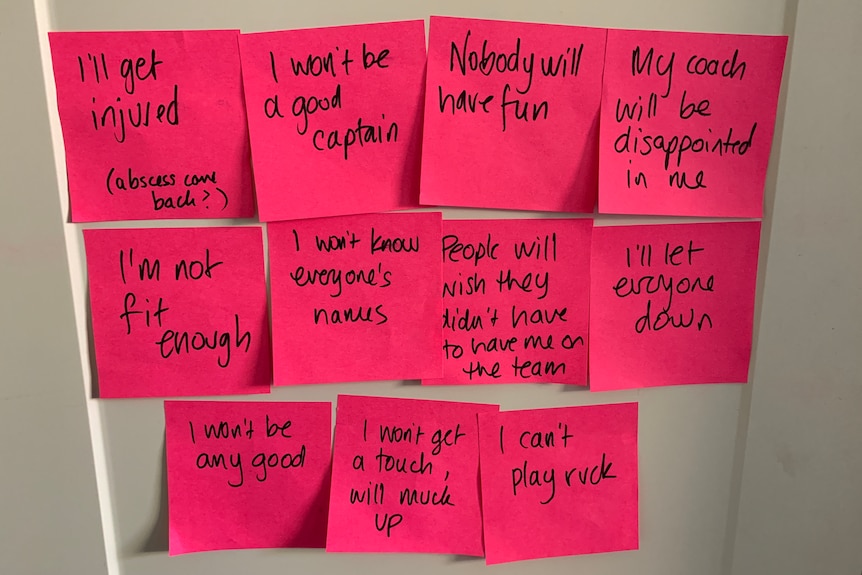 I'll get
injured
(abscess come
back?)
I won't be
a good
captain
Nobody will
have fun
My coach
will be
disappointed
in me
I'm not
fit
enough
I won't know
everyone's
names
People will
wish they
didn't have
to have me on
the team
I'll let
everyone
down
I won't be
any good
I won't get
a touch,
will muck
up
I can't
play ruck